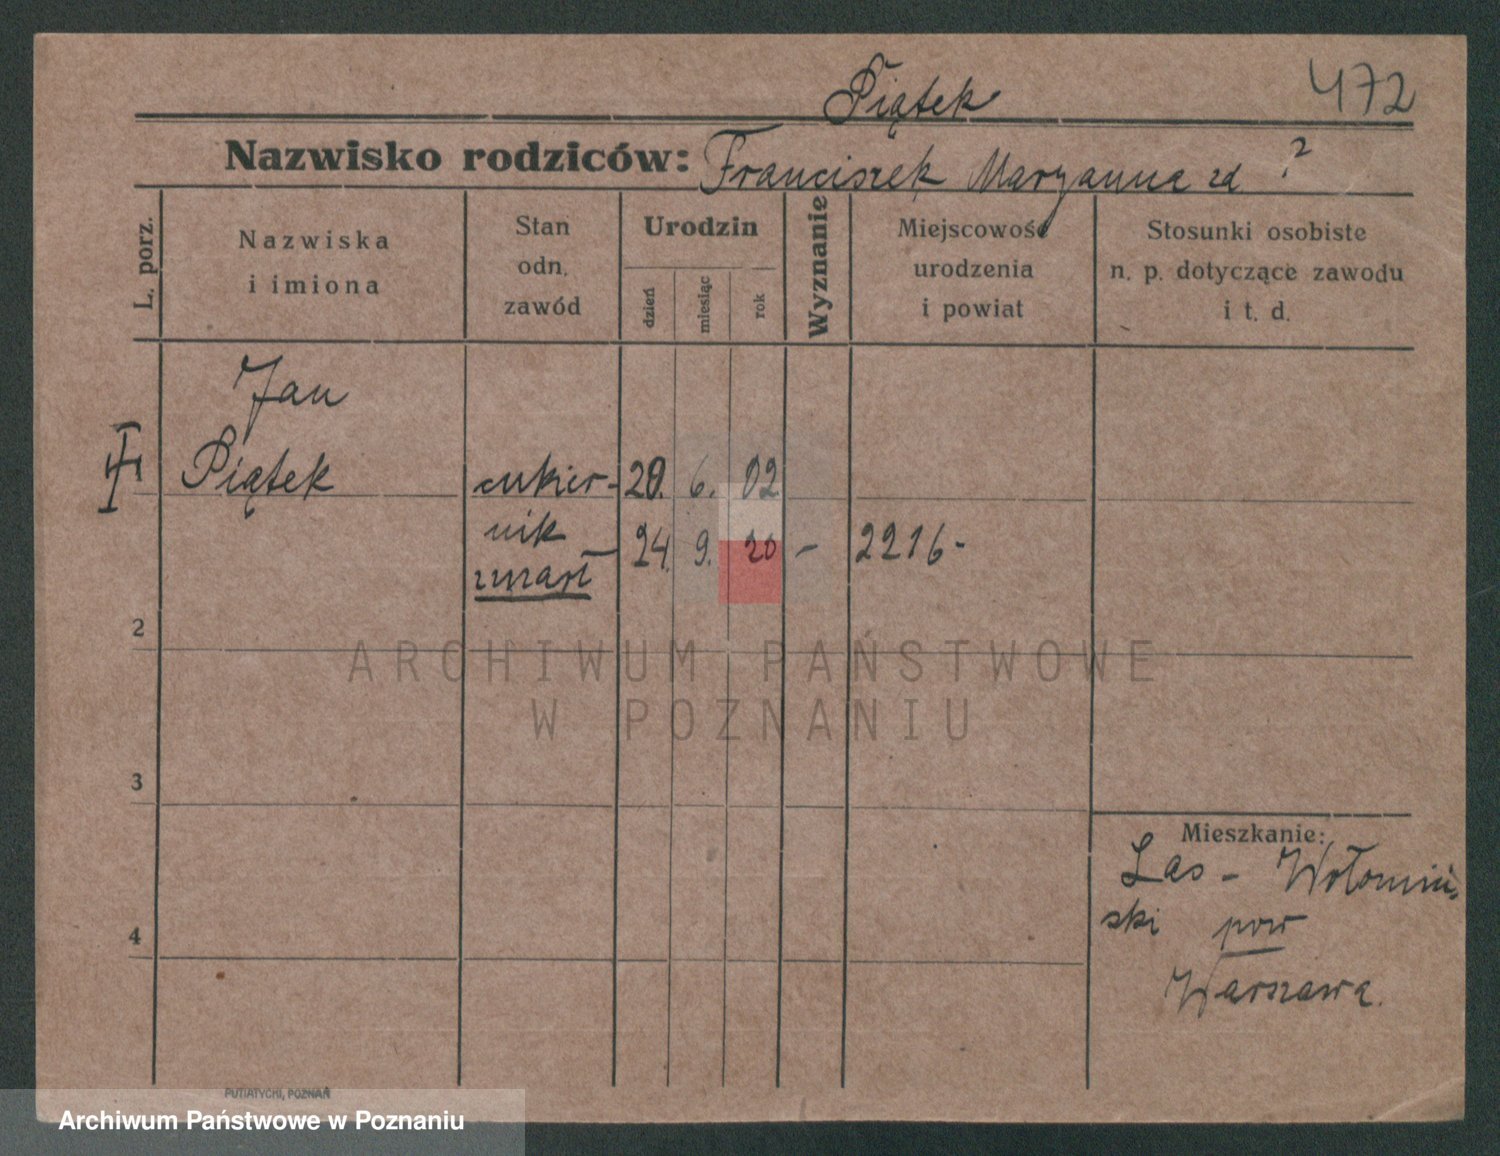 Piątek 472
Nazwisko rodziców: Franciszek Maryanna zd ?
L. porz.
Nazwiska
i imiona
Stan
odn.
zawód
Urodzin
dzień
miesiąc
rok
Wyznanie
Miejscowość
urodzenia
i powiat
Stosunki osobiste
n. p. dotyczące zawodu
i t. d.
Jan
Piątek cukier- 20. 6. 02
nik 24. 9. 20 - 2216-
zmarł
2
ARCHIWUM PAŃSTWOWE
W POZNANIU
3
Mieszkanie:
Las - Wołomiń-
4 ski pow
Warszawa.
PUTIATYCKI, POZNAŃ
Archiwum Państwowe w Poznaniu